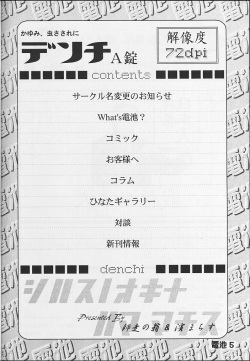 かゆみ、虫さされに
デンチA錠
解像度
72dpi
contents
サークル名変更のお知らせ
What's電池？
コミック
お客様へ
コラム
ひなたギャラリー
対談
新刊情報
denchi
シルスノオキナ
Presented By
電池 5